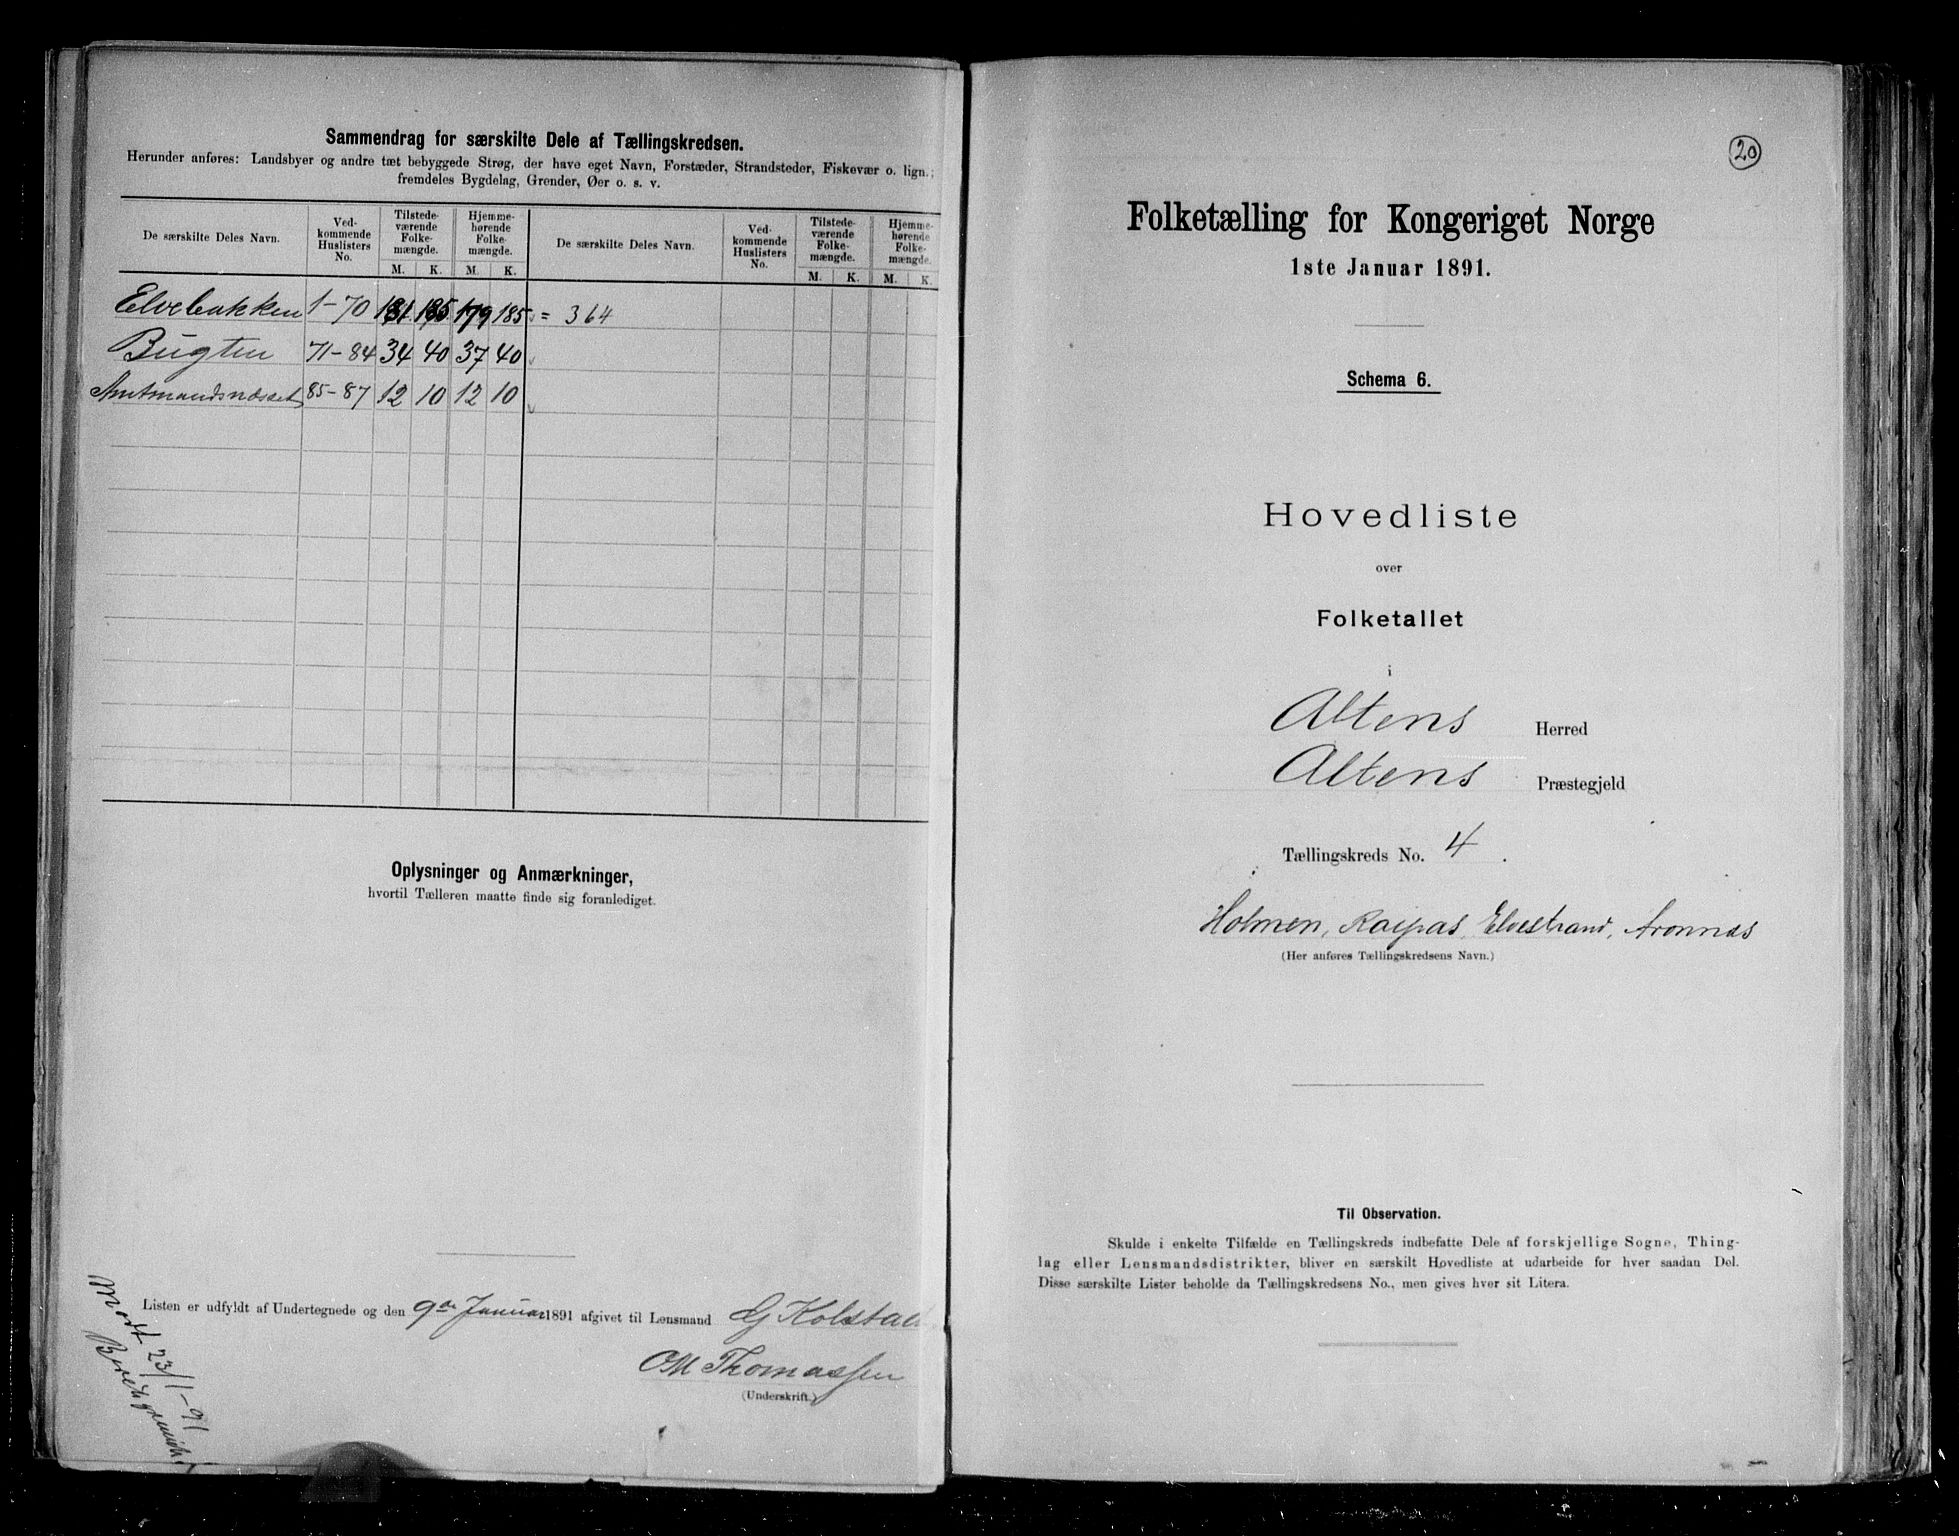 Sammendrag for særskilte Dele af Tællingskredsen.
Herunder anføres: Landsbyer og andre tæt bebyggede Strøg, der have eget Navn, Forstæder, Strandsteder, Fiskevær o. lign.;
fremdeles Bygdelag, Grender, Øer o. s. v.
De særskilte Deles Navn. Ved-kommende Huslisters No. Tilstede-værende Folke-mængde. Hjemme-hørende Folke-mængde. De særskilte Deles Navn. Ved-kommende Huslisters No. Tilstede-værende Folke-mængde. Hjemme-hørende Folke-mængde.
M. K. M. K. M. K. M. K.
Elvebakken 1-70 181 185 179 185 = 364
Bugten 71-84 34 40 37 40
Amtmandsnæsset 85-87 12 10 12 10
Oplysninger og Anmærkninger,
hvortil Tælleren maatte finde sig foranlediget.
Listen er udfyldt af Undertegnede og den 9de Januar 1891 afgivet til Lensmand G Kolstad
OM Thomassen
(Underskrift.)
Modt 23/1-91
20
Folketælling for Kongeriget Norge
1ste Januar 1891.
Schema 6.
Hovedliste
over
Folketallet
i
Altens Herred
Altens Præstegjeld
Tællingskreds No. 4.
Holmen, Raipas, Elvestrand, Aronnæs
(Her anføres Tællingskredsens Navn.)
Til Observation.
Skulde i enkelte Tilfælde en Tællingskreds indbefatte Dele af forskjellige Sogne, Thing-
lag eller Lensmandsdistrikter, bliver en særskilt Hovedliste at udarbeide for hver saadan Del.
Disse særskilte Lister beholde da Tællingskredsens No., men gives hver sit Litera.